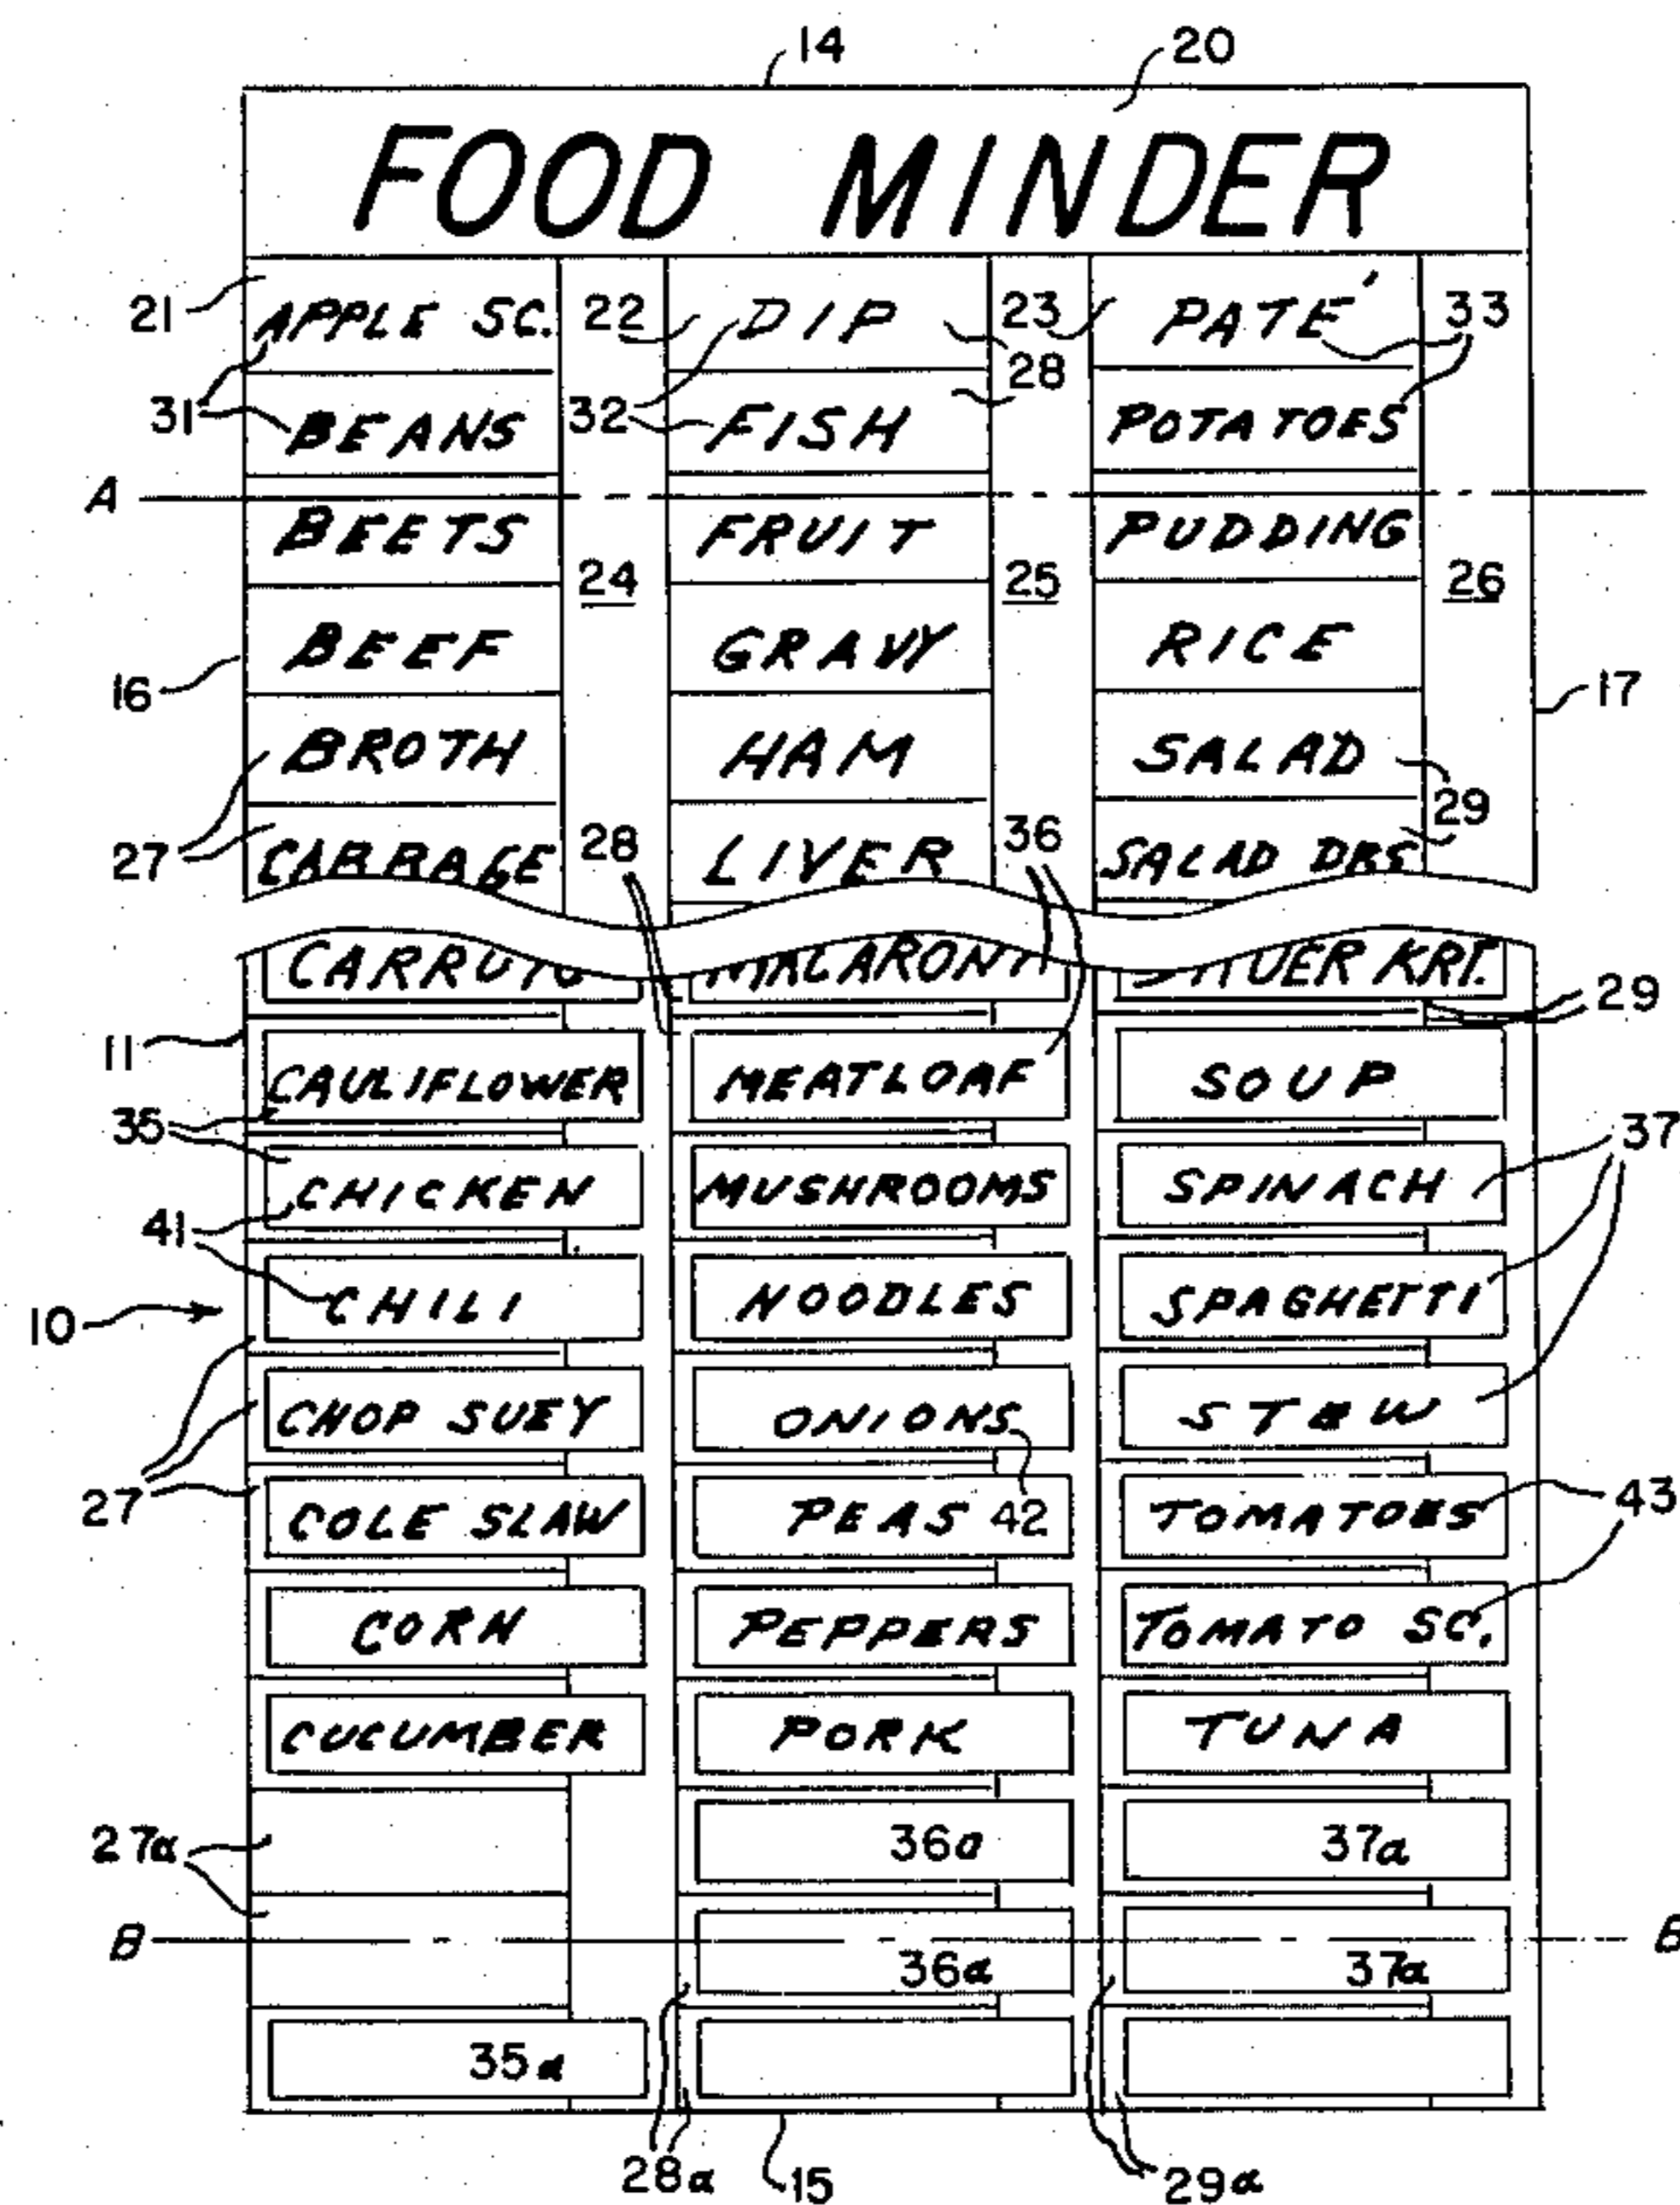 14 20
FOOD MINDER
21 APPLE SC. 22 DIP 23 PATÉ 33
31 BEANS 32 FISH 28 POTATOES
A
BEETS FRUIT PUDDING
24 25 26
16 BEEF GRAVY RICE 17
BROTH HAM SALAD
27 CABBAGE 28 LIVER 36 SALAD DRS 29
MACARONI KRT.
11 29
35 CAULIFLOWER MEATLOAF SOUP
41 CHICKEN MUSHROOMS SPINACH 37
10 CHILI NOODLES SPAGHETTI
CHOP SUEY ONIONS STEW
27 COLE SLAW PEAS 42 TOMATOES 43
CORN PEPPERS TOMATO SC.
CUCUMBER PORK TUNA
27a 36a 37a
B 36a 37a B
35a
28a 15 29a